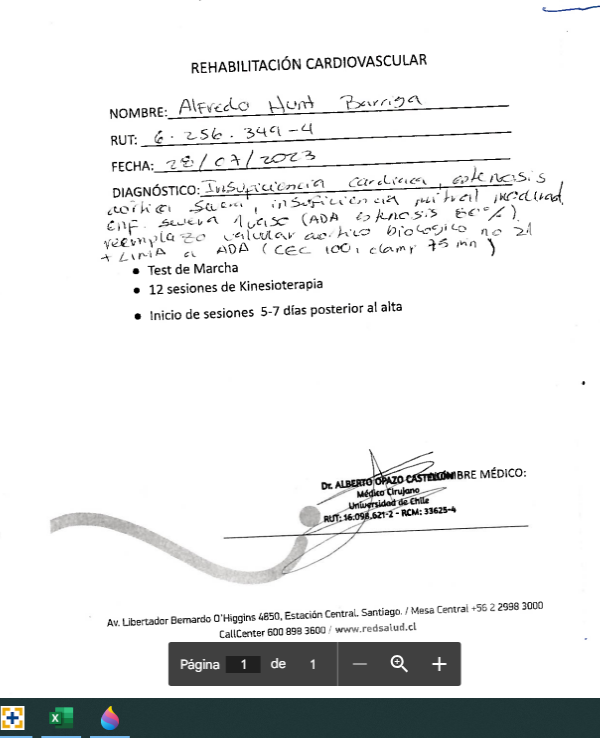 REHABILITACIÓN CARDIOVASCULAR
NOMBRE: Alfredo Hunt Barriga
RUT: 6.256.349-4
FECHA: 28/07/2023
DIAGNÓSTICO: Insuficiencia cardiaca, estenosis
aórtica, insuficiencia mitral
enf. severa 1 vaso (ADA estenosis 80%)
reemplazo valvular aórtico biologico no 21
+ LIMA a ADA (CEC 100, clamp 75 mn)
• Test de Marcha
• 12 sesiones de Kinesioterapia
• Inicio de sesiones 5-7 días posterior al alta
Dr. ALBERTO OPAZO CASTELLÓN
BRE MÉDICO:
Médico Cirujano
Universidad de Chile
RUT: 16.098.621-2 - RCM: 33625-4
Av. Libertador Bernardo O'Higgins 4850, Estación Central. Santiago. / Mesa Central +56 2 2998 3000
CallCenter 600 898 3600 / www.redsalud.cl
Página 1 de 1